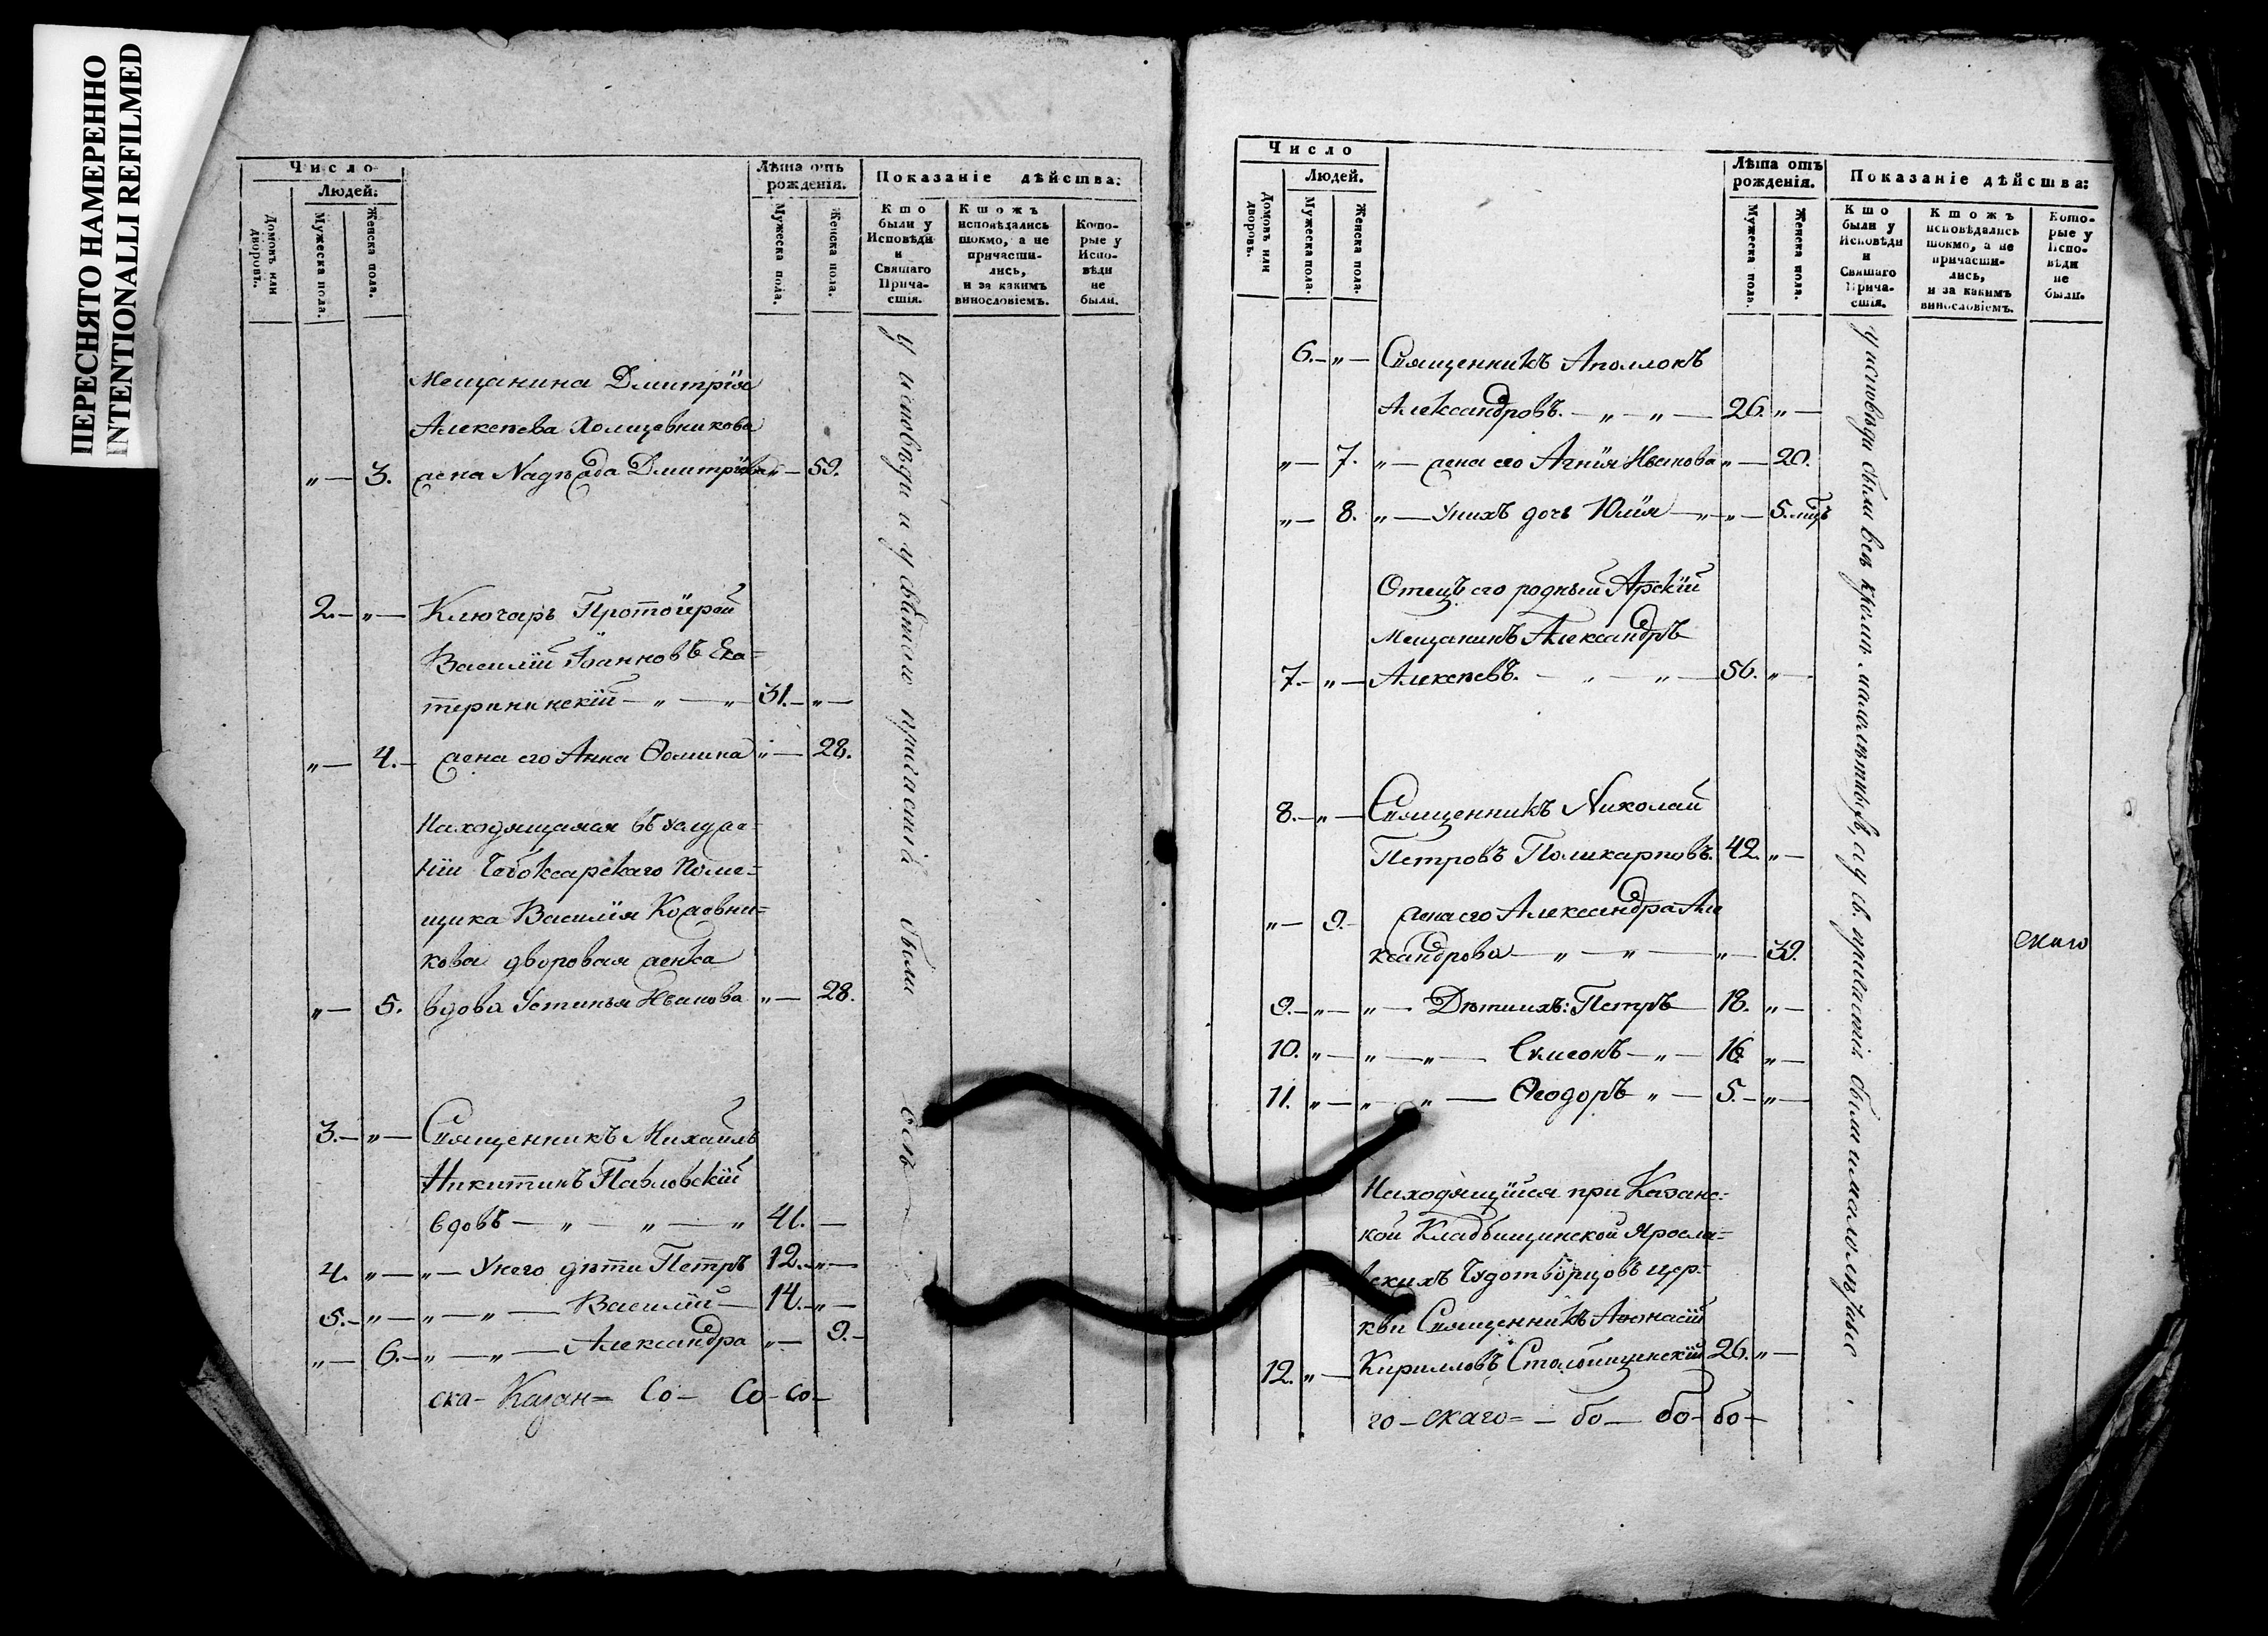 ПЕРЕСНЯТО НАМЕРЕННО
INTENTIONALLI REFILMED
Число
Людей:
Домовъ или дворовъ.
Мужеска пола.
Женска пола.
Лѣта отъ рожденія.
Мужеска пола.
Женска пола.
Показаніе дѣйства:
Кто были у Исповѣди и Святаго Причастія.
Ктожъ исповѣдались токмо, а не причастились, и за какимъ винословіемъ.
Которые у Исповѣди не были.
Мещанина Дмитрія
Алексѣева Холщевникова
„— 3. жена Надѣжда Дмитріева „— 59.
2.— „— Ключарь Протоіерей
Василій Іоанновъ Ека=
терининскій — „ — „ 31.— „—
„— 4.— жена его Анна Ѳомина „— 28.
Находящаяся въ услуже=
ніи Чебоксарскаго Поме=
щика Василія Кожевни=
кова дворовая женка
„— 5. вдова Устинья Иванова „— 28.
3.— „— Священникъ Михаилъ
Никитинъ Павловскій
вдовъ — „ — „ — „ 41.—
4. „— „— У него дѣти Петръ 12.— „—
5.— „— „— „— Василій — 14.— „—
„— 6.— „— „— Александра „— 9.—
ска- Казан= Со- Со- Со-
у исповѣди и у святаго причастія были всѣ
Число
Людей.
Домовъ или дворовъ.
Мужеска пола.
Женска пола.
Лѣта отъ рожденія.
Мужеска пола.
Женска пола.
Показаніе дѣйства:
Кто были у Исповѣди и Святаго Причастія.
Ктожъ исповѣдались токмо, а не причастились, и за какимъ винословіемъ.
Которые у Исповѣди не были.
6.— „— Священникъ Аполлонъ
Александровъ. — „ — „ — 26. „—
„— 7. „— жена его Агнія Иванова „— 20.
„— 8. „— У нихъ дочь Юлія — „ „— 5. мцъ
Отецъ его родный Арскій
мещанинъ Александръ
7.— „— Алексѣевъ. — „ — „ — 56. „—
8.— „— Священникъ Николай
Петровъ Поликарповъ. 42. „—
„— 9.— жена его Александра Але
ксандрова — „ — „ — „— 39.
9.— „— „— Дѣти ихъ: Петръ — 18. „—
10. „— „— „— Симеонъ — „ — 16. „—
11. „— „— „— Ѳеодоръ „ — 5.— „—
Находящійся при Казанс=
кой Кладбищинской Яросла=
вскихъ Чудотворцовъ цер=
кви Священникъ Аѳонасій
12. „— Кирилловъ Столбищинскій 26. „—
го- скаго= - бо- бо- бо-
у исповѣди были всѣ кромѣ малолѣтныхъ, а у св. причастія были и малолѣтные
скаго